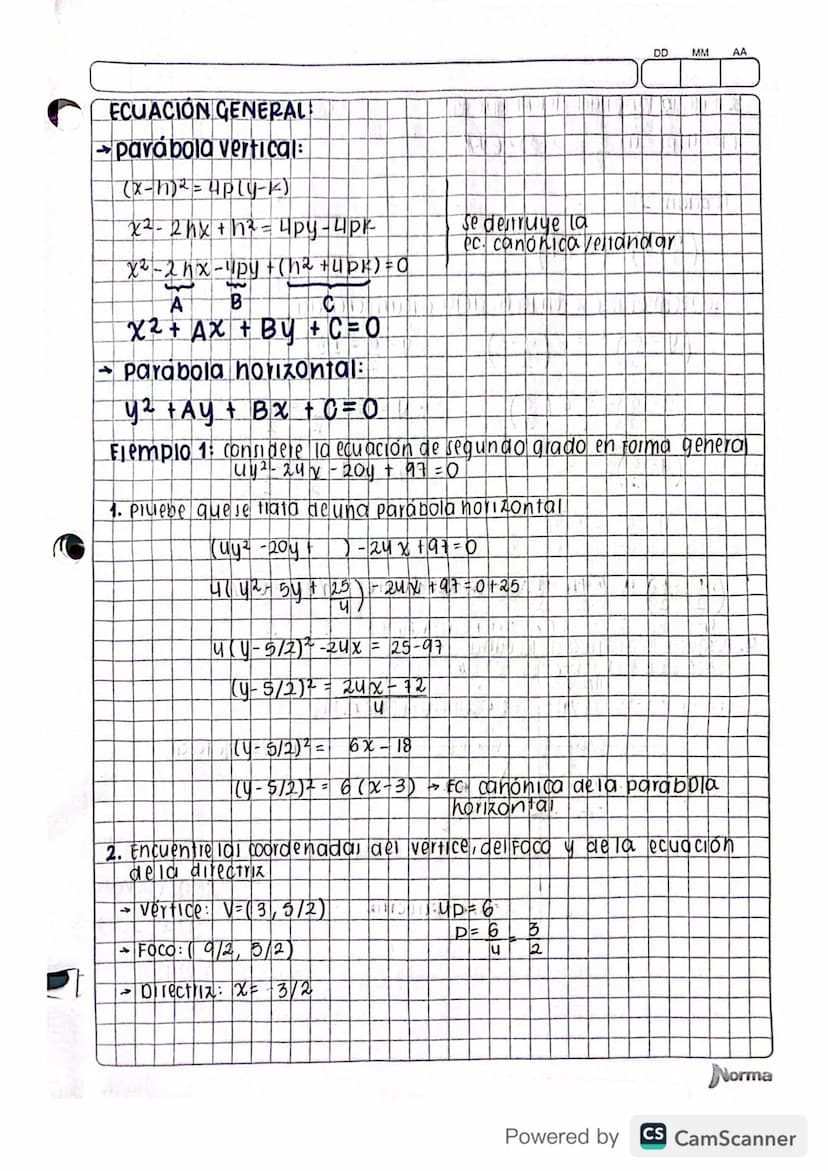 DD MM AA
ECUACIÓN GENERAL:
→ parábola vertical:
(x-h)² = 4p(y-k)
x² - 2hx + h² = 4py - 4pk
se destruye la
ec. canónica/estándar
x² - 2hx - 4py + (h² + 4pk) = 0
A B C
x² + Ax + By + C = 0
→ Parábola horizontal:
y² + Ay + Bx + C = 0
Ejemplo 1: considere la ecuación de segundo grado en forma general
4y² - 24x - 20y + 97 = 0
1. Pruebe que se trata de una parábola horizontal
(4y² - 20y + ) - 24x + 97 = 0
4(y² - 5y + 25/4) - 24x + 97 = 0 + 25
4(y - 5/2)² - 24x = 25 - 97
(y - 5/2)² = 24x - 72
4
(y - 5/2)² = 6x - 18
(y - 5/2)² = 6(x - 3) → Ec. canónica de la parábola
horizontal
2. Encuentre las coordenadas del vértice, del foco y de la ecuación
de la directriz
→ Vértice: V = (3, 5/2) 4p = 6
p = 6/4 = 3/2
→ Foco: (9/2, 5/2)
→ Directriz: x = 3/2
Norma
Powered by CS CamScanner